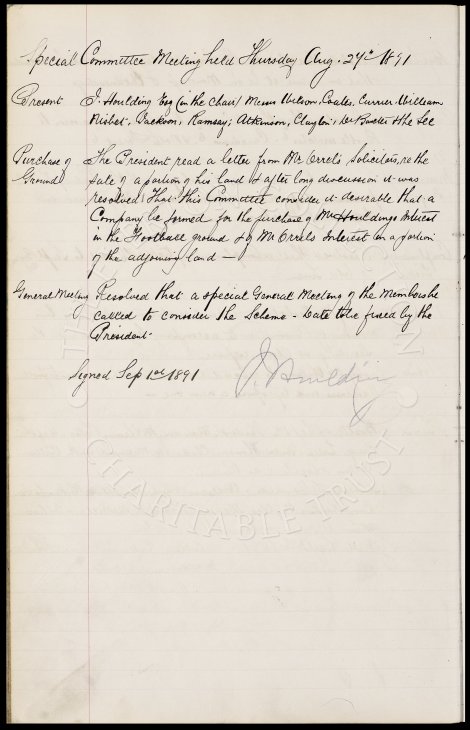 Special Committee Meeting held Thursday Aug. 27th 1891
Present J. Houlding Esq (in the Chair) Messrs Wilson, Coates, Currier, William
Nisbet, Jackson, Ramsay, Atkinson, Clayton, Dr Baxter & the Sec
Purchase of The President read a letter from Mr Orrels, Solicitors, re the
Ground sale of a portion of his land & after long discussion it was
resolved That this Committee consider it desirable that a
Company be formed for the purchase of Mr Houldings Interest
in the Football ground & of Mr Orrels Interest in a portion
of the adjoining land —
General Meeting Resolved that a special General Meeting of the Members be
called to consider the Scheme - Date to be fixed by the
President.
Signed Sep 1st 1891 J. Houlding
CHARITABLE TRUST